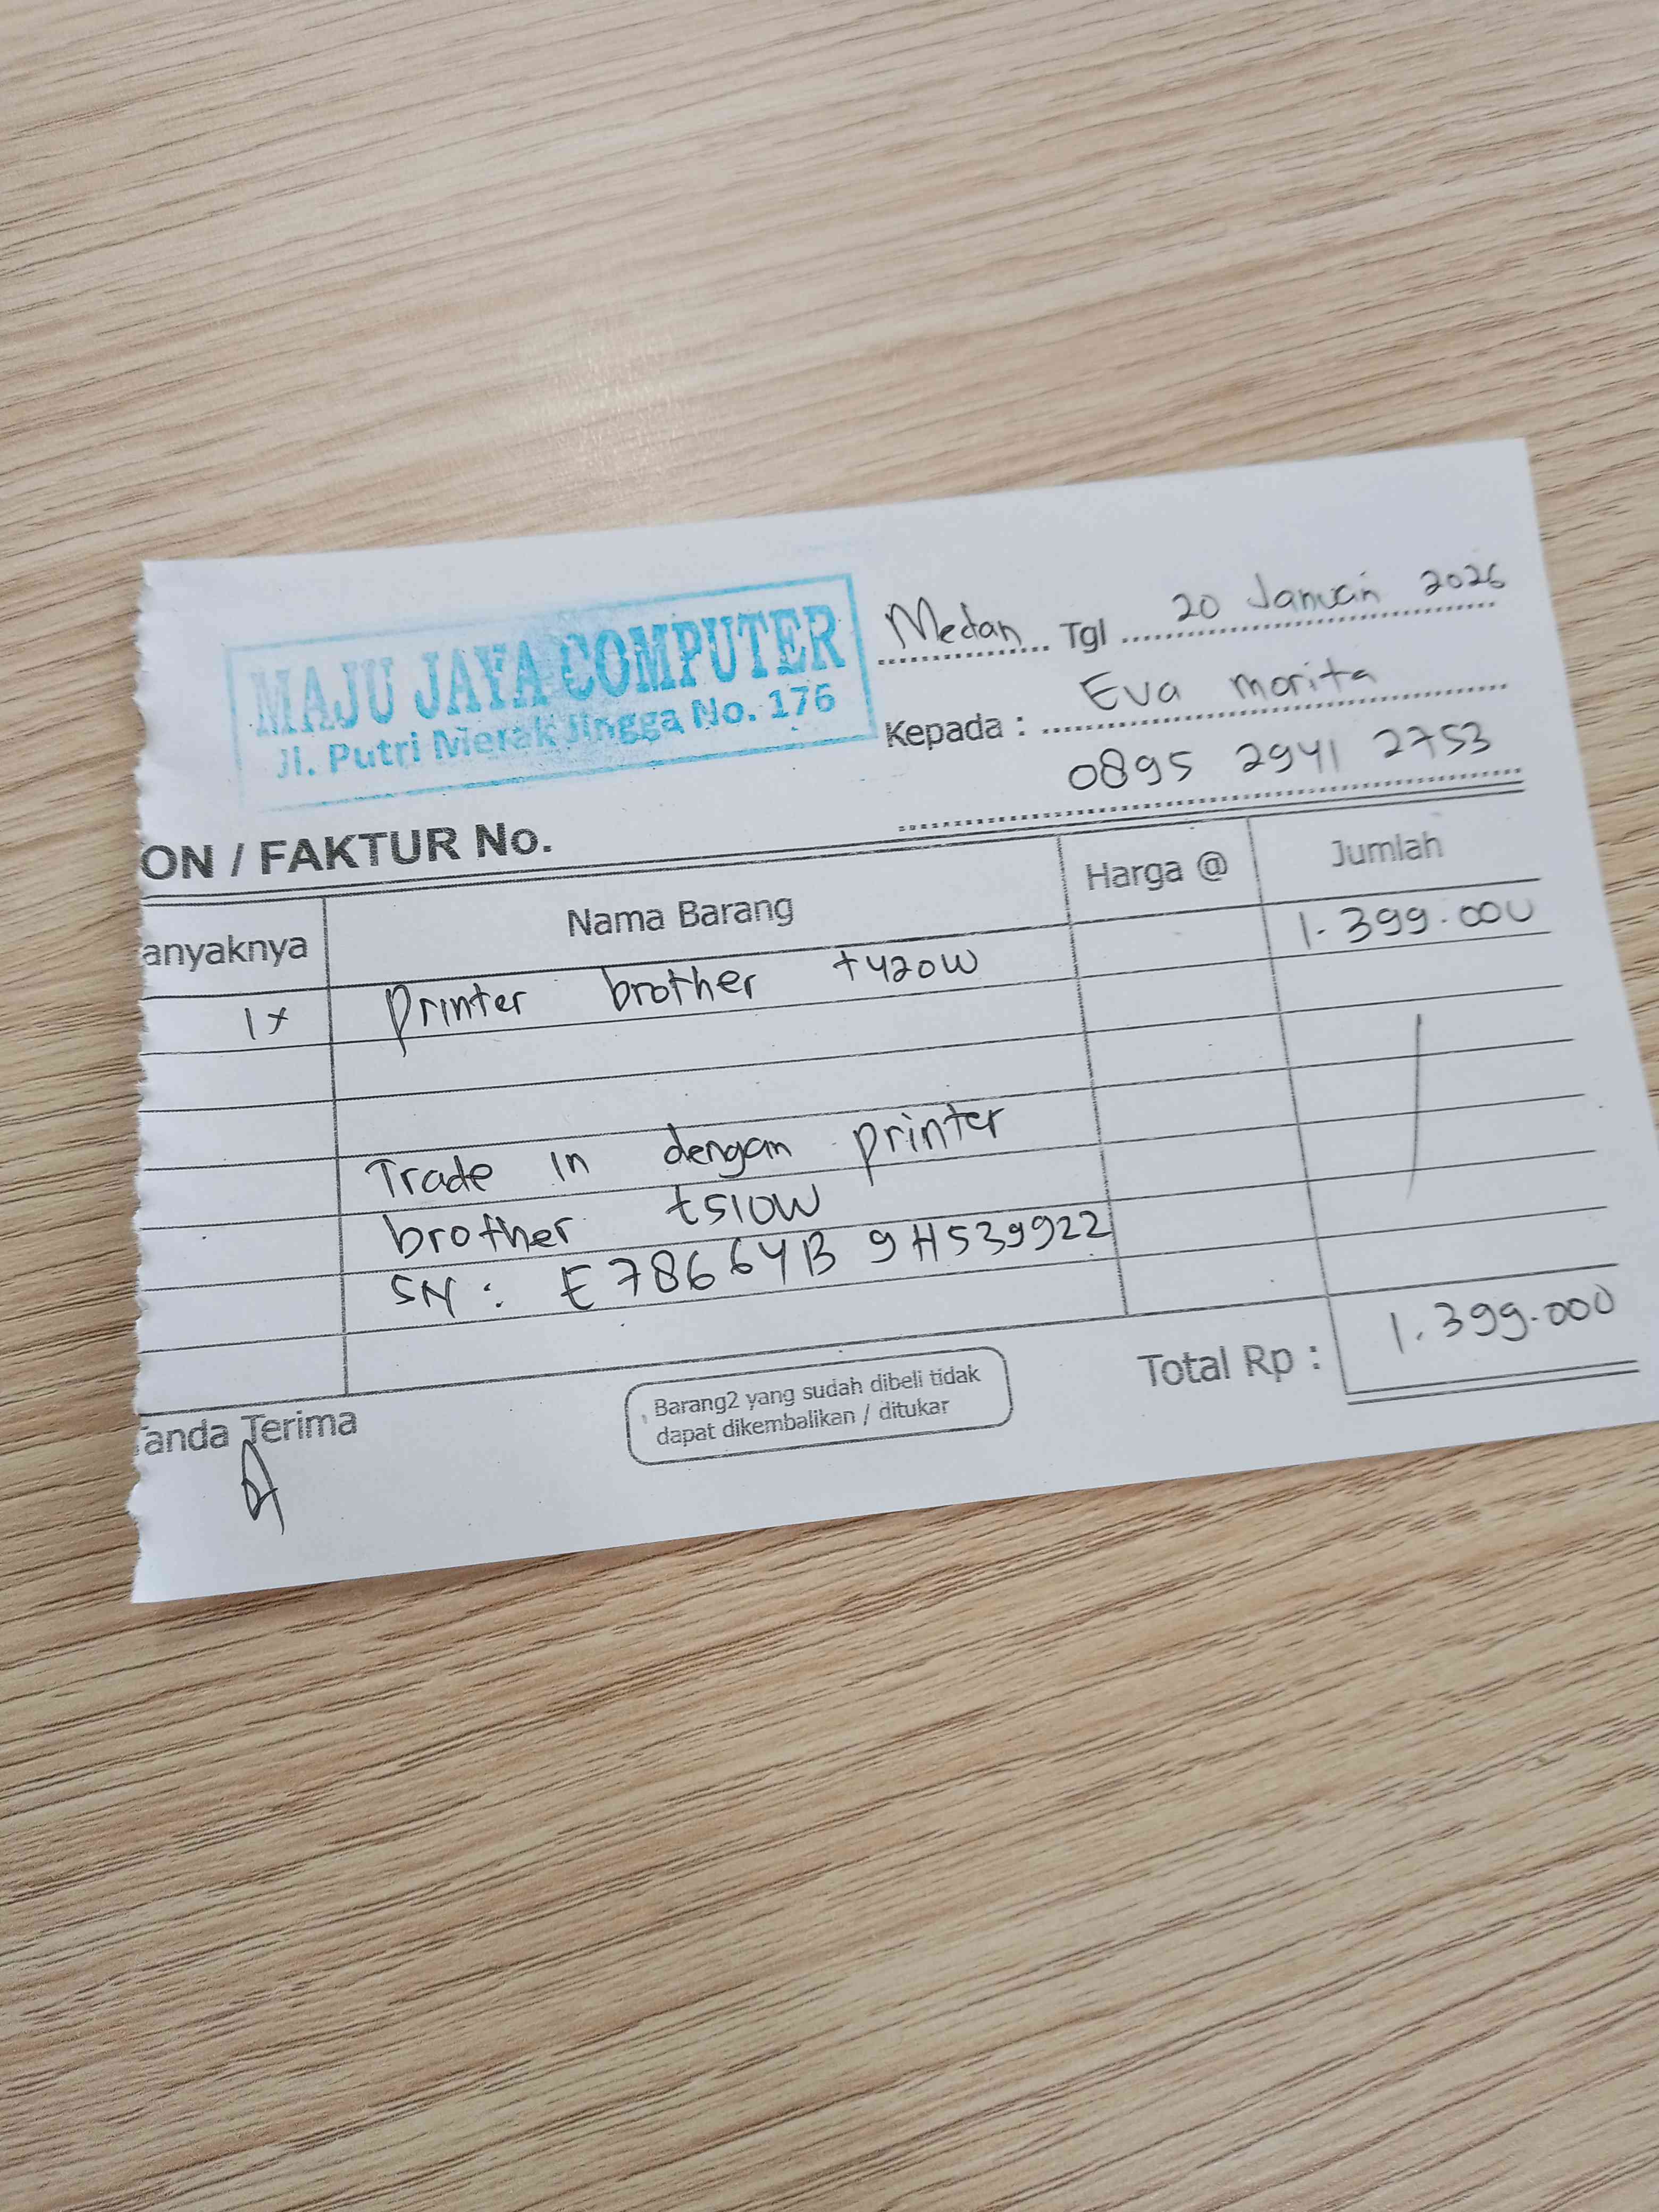 MAJU JAYA COMPUTER
Jl. Putri Merak Jingga No. 176
Medan Tgl 20 Januari 2026
Kepada : Eva morita
0895 2941 2753
ON / FAKTUR No.
anyaknya Nama Barang Harga @ Jumlah
1x Printer brother t420W 1.399.000
Trade in dengan printer
brother t510W
SN : E78664B9H539922
Total Rp : 1.399.000
anda Terima
Barang2 yang sudah dibeli tidak
dapat dikembalikan / ditukar